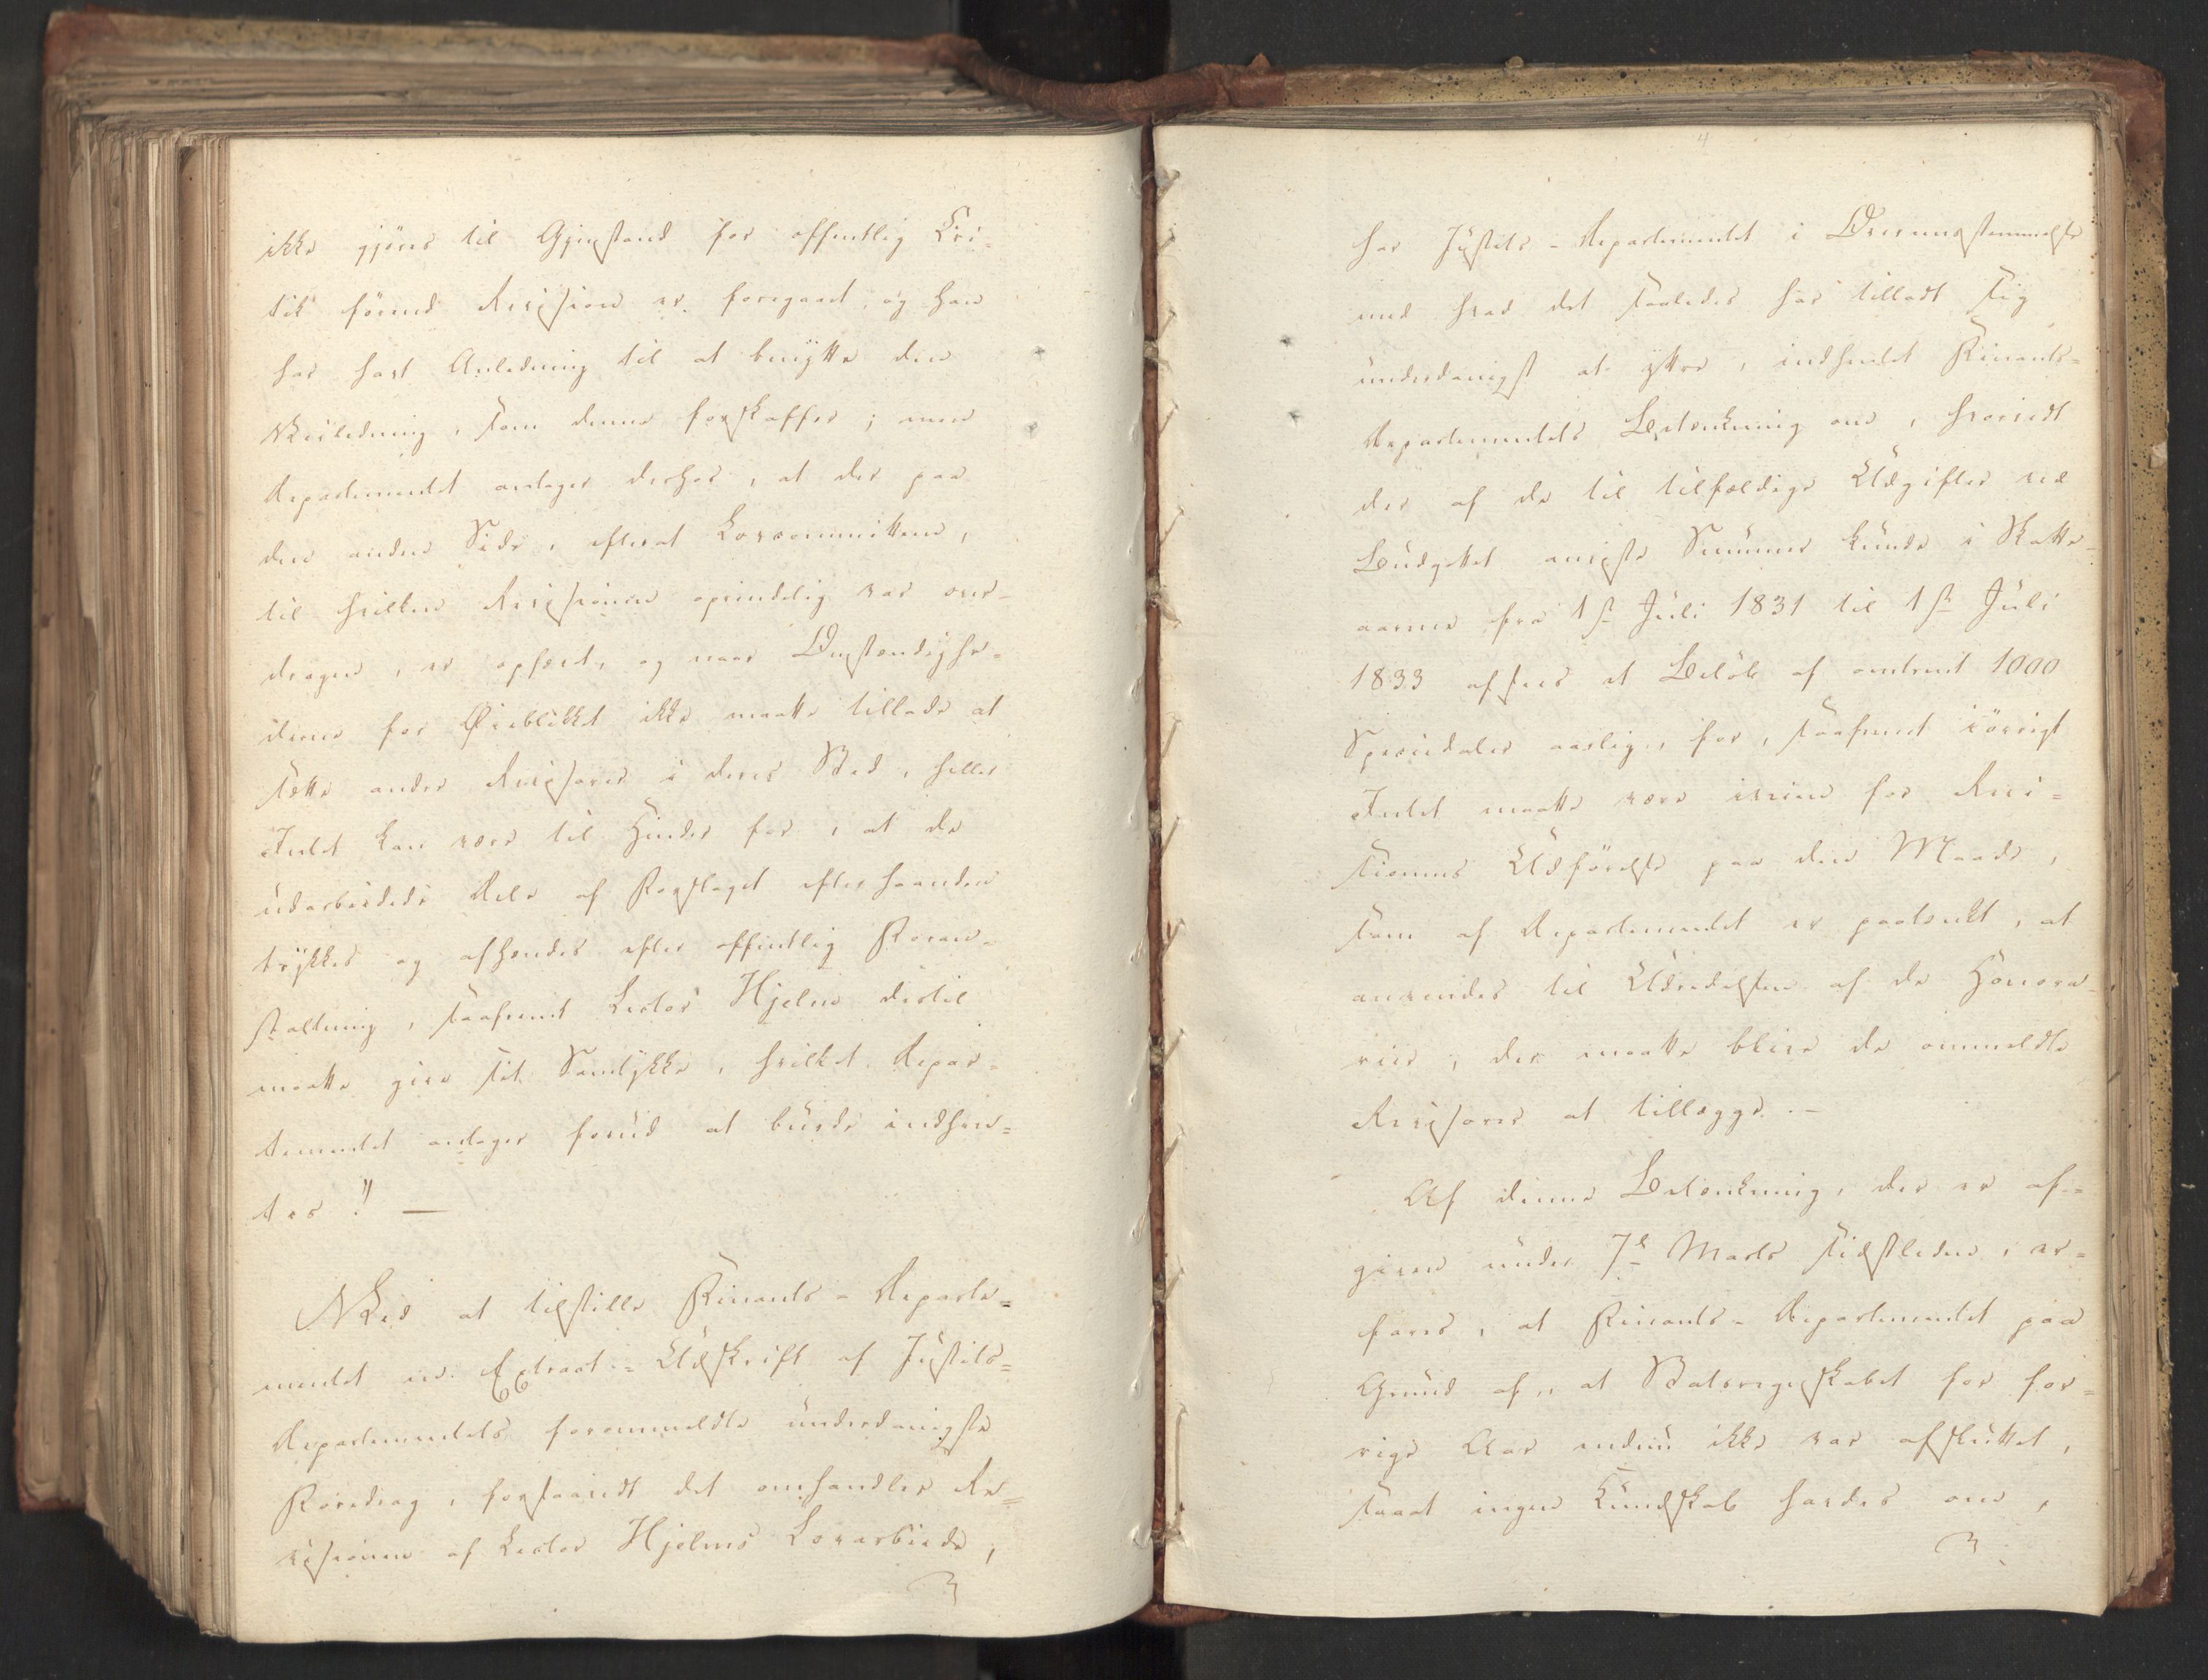 ikke gjøres til Gjenstand for offentlig Kri-
tik førend Revisionen er foregaaet, og han
har havt Anledning til at benytte den
Veiledning, som denne forskaffer; men
Departementet antager derhos, at der paa
den anden Side, efterat Lovcommitteen,
til hvilken Revisionen oprindelig var over-
dragen, er ophævet, og naar Omstændighe-
derne for Øieblikket ikke maatte tillade at
sætte andre Revisorer i deres Sted, heller
Intet kan være til Hinder for, at de
udarbeidede Dele af Forslaget efterhaanden
trykkes og afhændes efter offentlig Foran-
staltning, saafremt Lector Hjelm dertil
maatte give sit Samtykke, hvilket Depar-
tementet antager forud at burde indhen-
tes!" —
Ved at tilstille Finants-Departe-
mentet en Extract-Udskrift af Justits-
Departementets forommeldte underdanigste
Foredrag, forsaavidt det omhandler Re-
visionen af Lector Hjelms Lovarbeide,
har Justits-Departementet i Overensstemmelse
med hvad det saaledes har tilladt sig
underdanigst at yttre, indhentet Finants-
Departementets Betænkning om, hvorvidt
der af de til tilfældige Udgifter ved
Budgettet anviste Summer kunde i Skatte-
aarene fra 1ste Juli 1831 til 1ste Juli
1833 afsees et Beløb af omtrent 1000
Speciedaler aarlig, for, saafremt iøvrigt
Intet maatte være iveien for Revi-
sionens Udførelse paa den Maade,
som af Departementet er paatænkt, at
anvendes til Udredelsen af de Honora-
rier, der maatte blive de ommeldte
Revisorer at tillægge. —
Af denne Betænkning, der er af-
given under 7de Marts sidstleden, er-
fares, at Finants-Departementet paa
Grund af, at Statsregnskabet for for-
rige Aar endnu ikke var afsluttet,
samt ingen Kundskab havdes om,